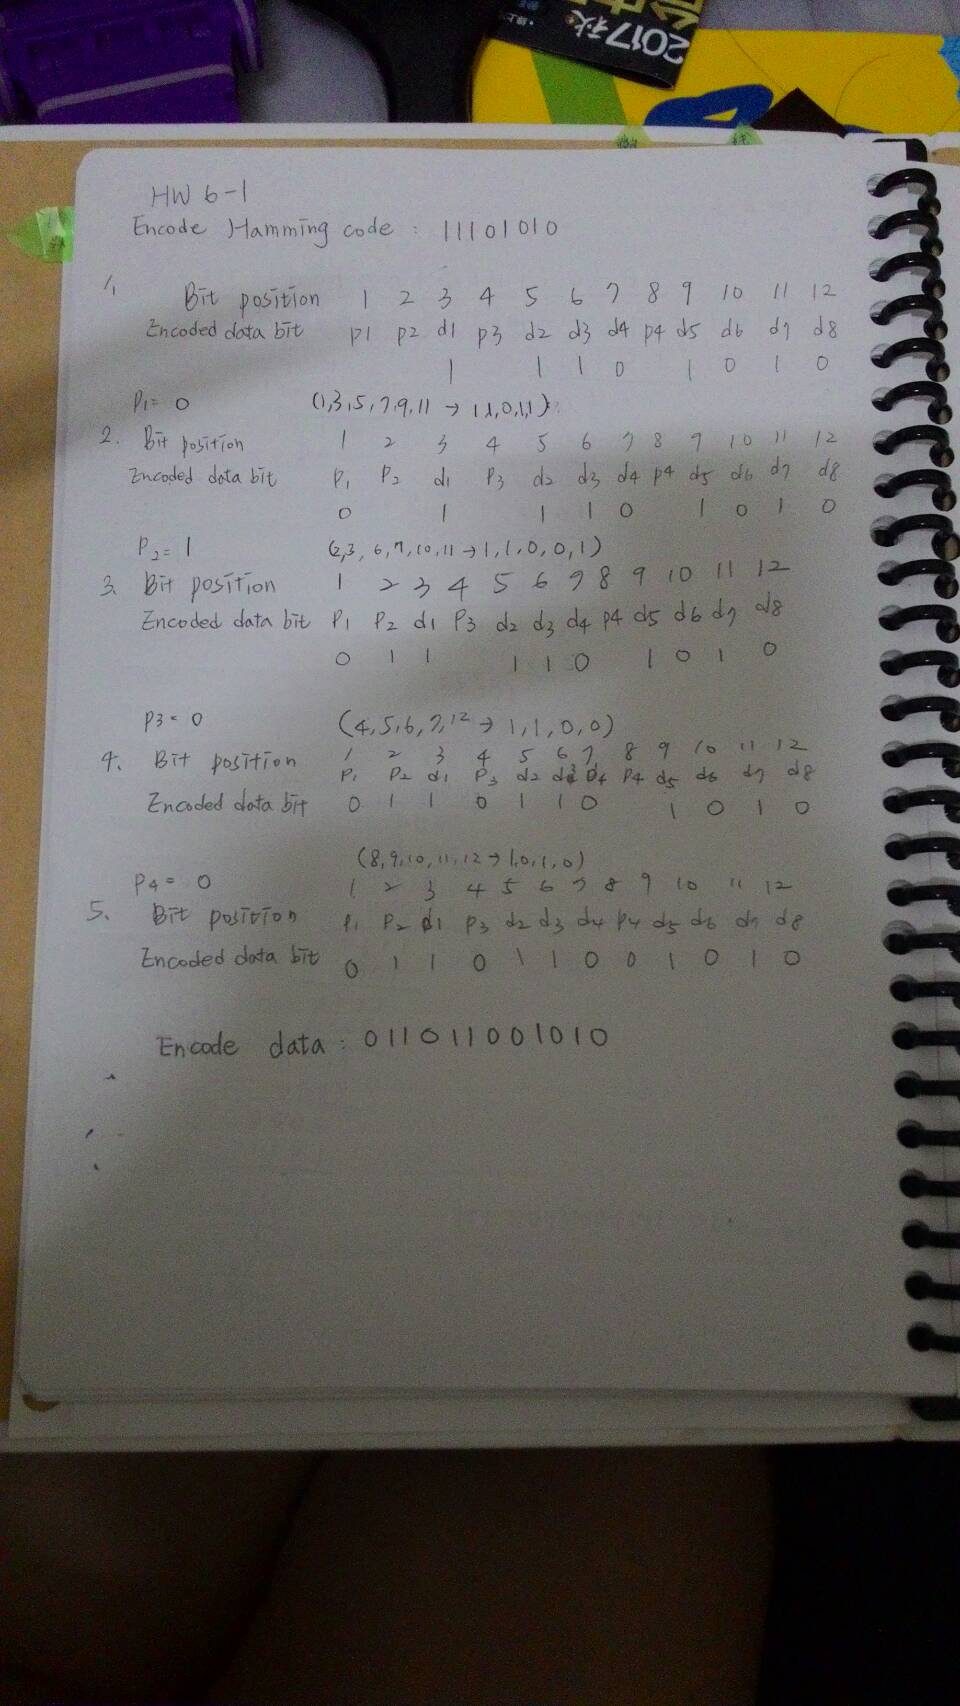 2017秋
HW 6-1
Encode Hamming code : 11101010
1, Bit position 1 2 3 4 5 6 7 8 9 10 11 12
Encoded data bit p1 p2 d1 p3 d2 d3 d4 p4 d5 d6 d7 d8
1 1 1 0 1 0 1 0
P1= 0 (1,3,5,7,9,11 → 1,1,0,1,1)
2. Bit position 1 2 3 4 5 6 7 8 9 10 11 12
Encoded data bit P1 P2 d1 P3 d2 d3 d4 p4 d5 d6 d7 d8
0 1 1 1 0 1 0 1 0
P2= 1 (2,3,6,7,10,11 → 1,1,0,0,1)
3. Bit position 1 2 3 4 5 6 7 8 9 10 11 12
Encoded data bit P1 P2 d1 P3 d2 d3 d4 p4 d5 d6 d7 d8
0 1 1 1 1 0 1 0 1 0
p3= 0 (4,5,6,7,12 → 1,1,0,0)
4. Bit position 1 2 3 4 5 6 7 8 9 10 11 12
P1 P2 d1 P3 d2 d3 d4 P4 d5 d6 d7 d8
Encoded data bit 0 1 1 0 1 1 0 1 0 1 0
(8,9,10,11,12 → 1,0,1,0)
P4= 0 1 2 3 4 5 6 7 8 9 10 11 12
5. Bit position P1 P2 d1 P3 d2 d3 d4 P4 d5 d6 d7 d8
Encoded data bit 0 1 1 0 1 1 0 0 1 0 1 0
Encode data : 011011001010